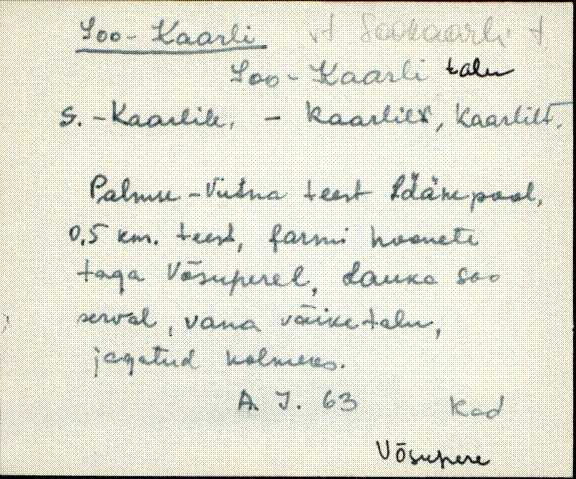 Soo-Kaarli vt Sookaarli t.
Soo-Kaarli talu
S.-Kaarlile, - Kaarlilt, Kaarlilt.
Palmse-Viitna teest läänepool,
0,5 km. teest, farmi hoonete
taga Võsuperel, Lauka soo
serval, vana väiketalu,
jagatud kolmeks.
A. J. 63 Kad
Võsupere